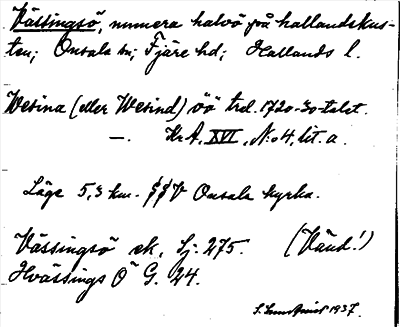 Vässingsö, numera halvö på hallandskus-
ten; Onsala sn; Fjäre hd; Hallands l.
Wesina (eller Wesind) öö trol. 1720-30-talet.
—. Kr A, XVI, N:o 4, lit. a.
Läge 5,3 km. SSV Onsala kyrka.
Vässingsö ek. Sj. 275. (Vänd!)
Hvässings Ö G. 24.
1937.